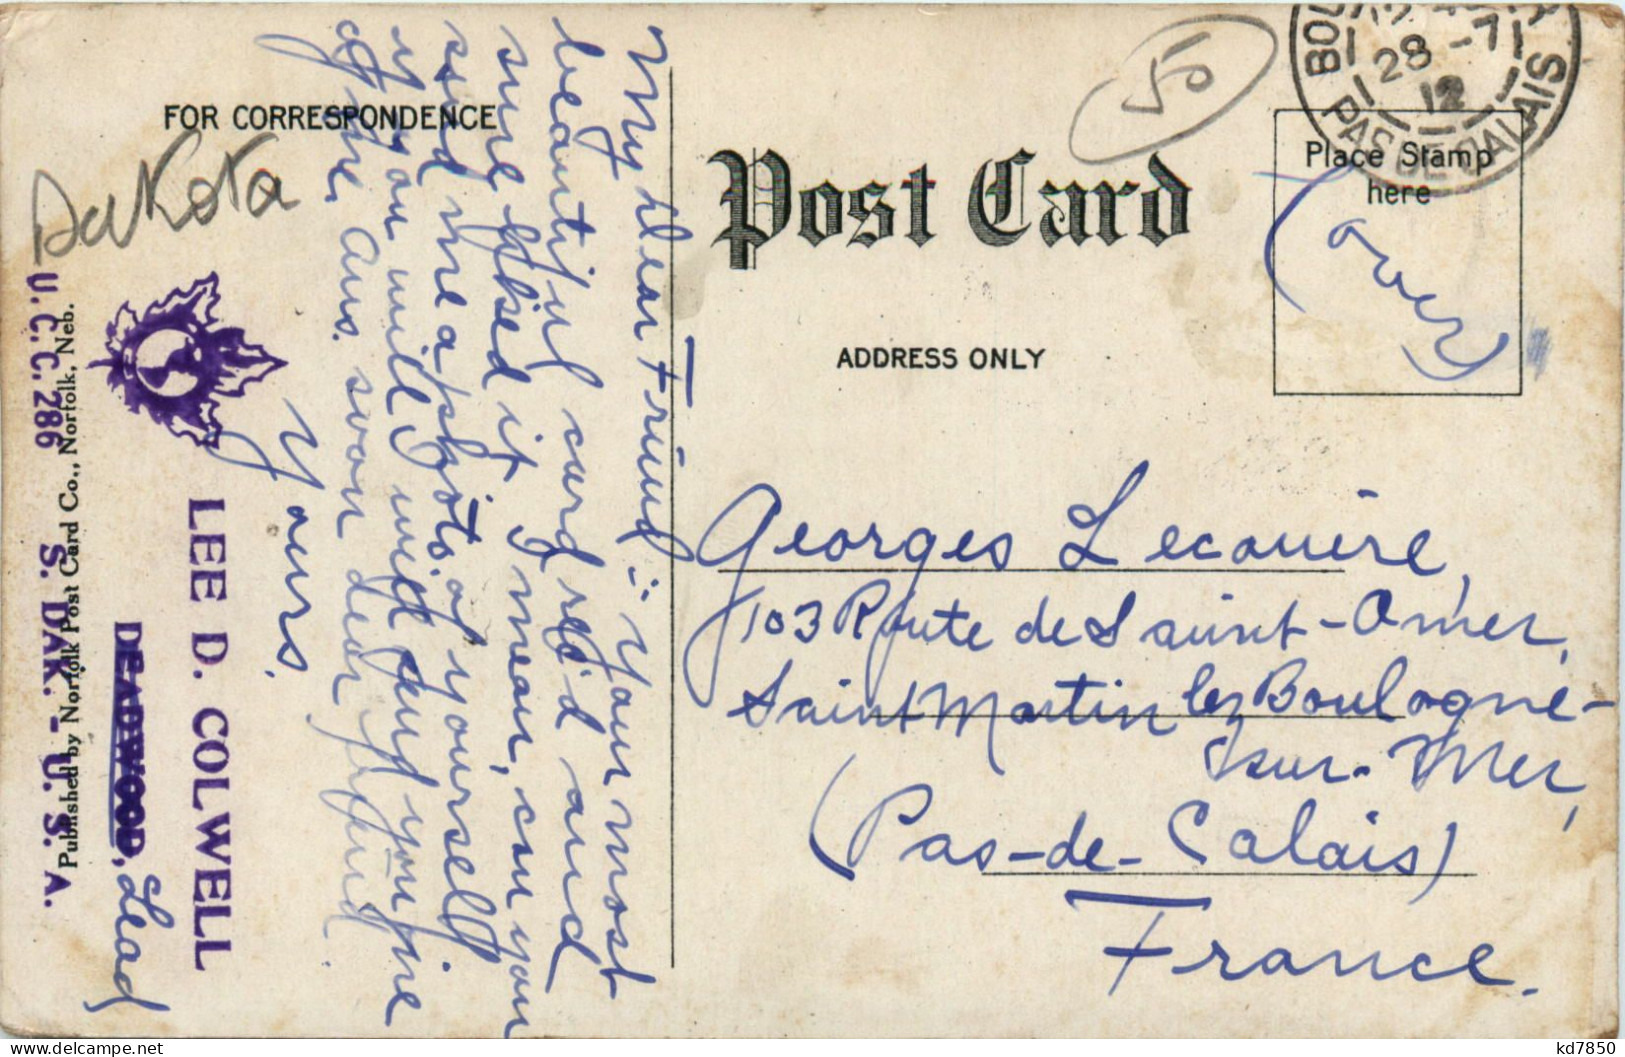 FOR CORRESPONDENCE
Dakota
My Dear Friend:- your most
beautiful card rec'd and
sure liked it. I mean, can you
send me a photo. of yourself
if you will I will send you one
of me, Ans. soon dear friend.
Yours.
LEE D. COLWELL
DEADWOOD, Lead
S. DAK. - U. S. A.
U. C. C. 286
Published by Norfolk Post Card Co., Norfolk, Neb.
Post Card
ADDRESS ONLY
Place Stamp
here
(over)
28 -7
12
PAS DE CALAIS
Georges Lecouire,
103 Route de Saint-Omer,
Saint Martin lez Boulogne-
sur-Mer,
(Pas-de-Calais)
France.
kd7850